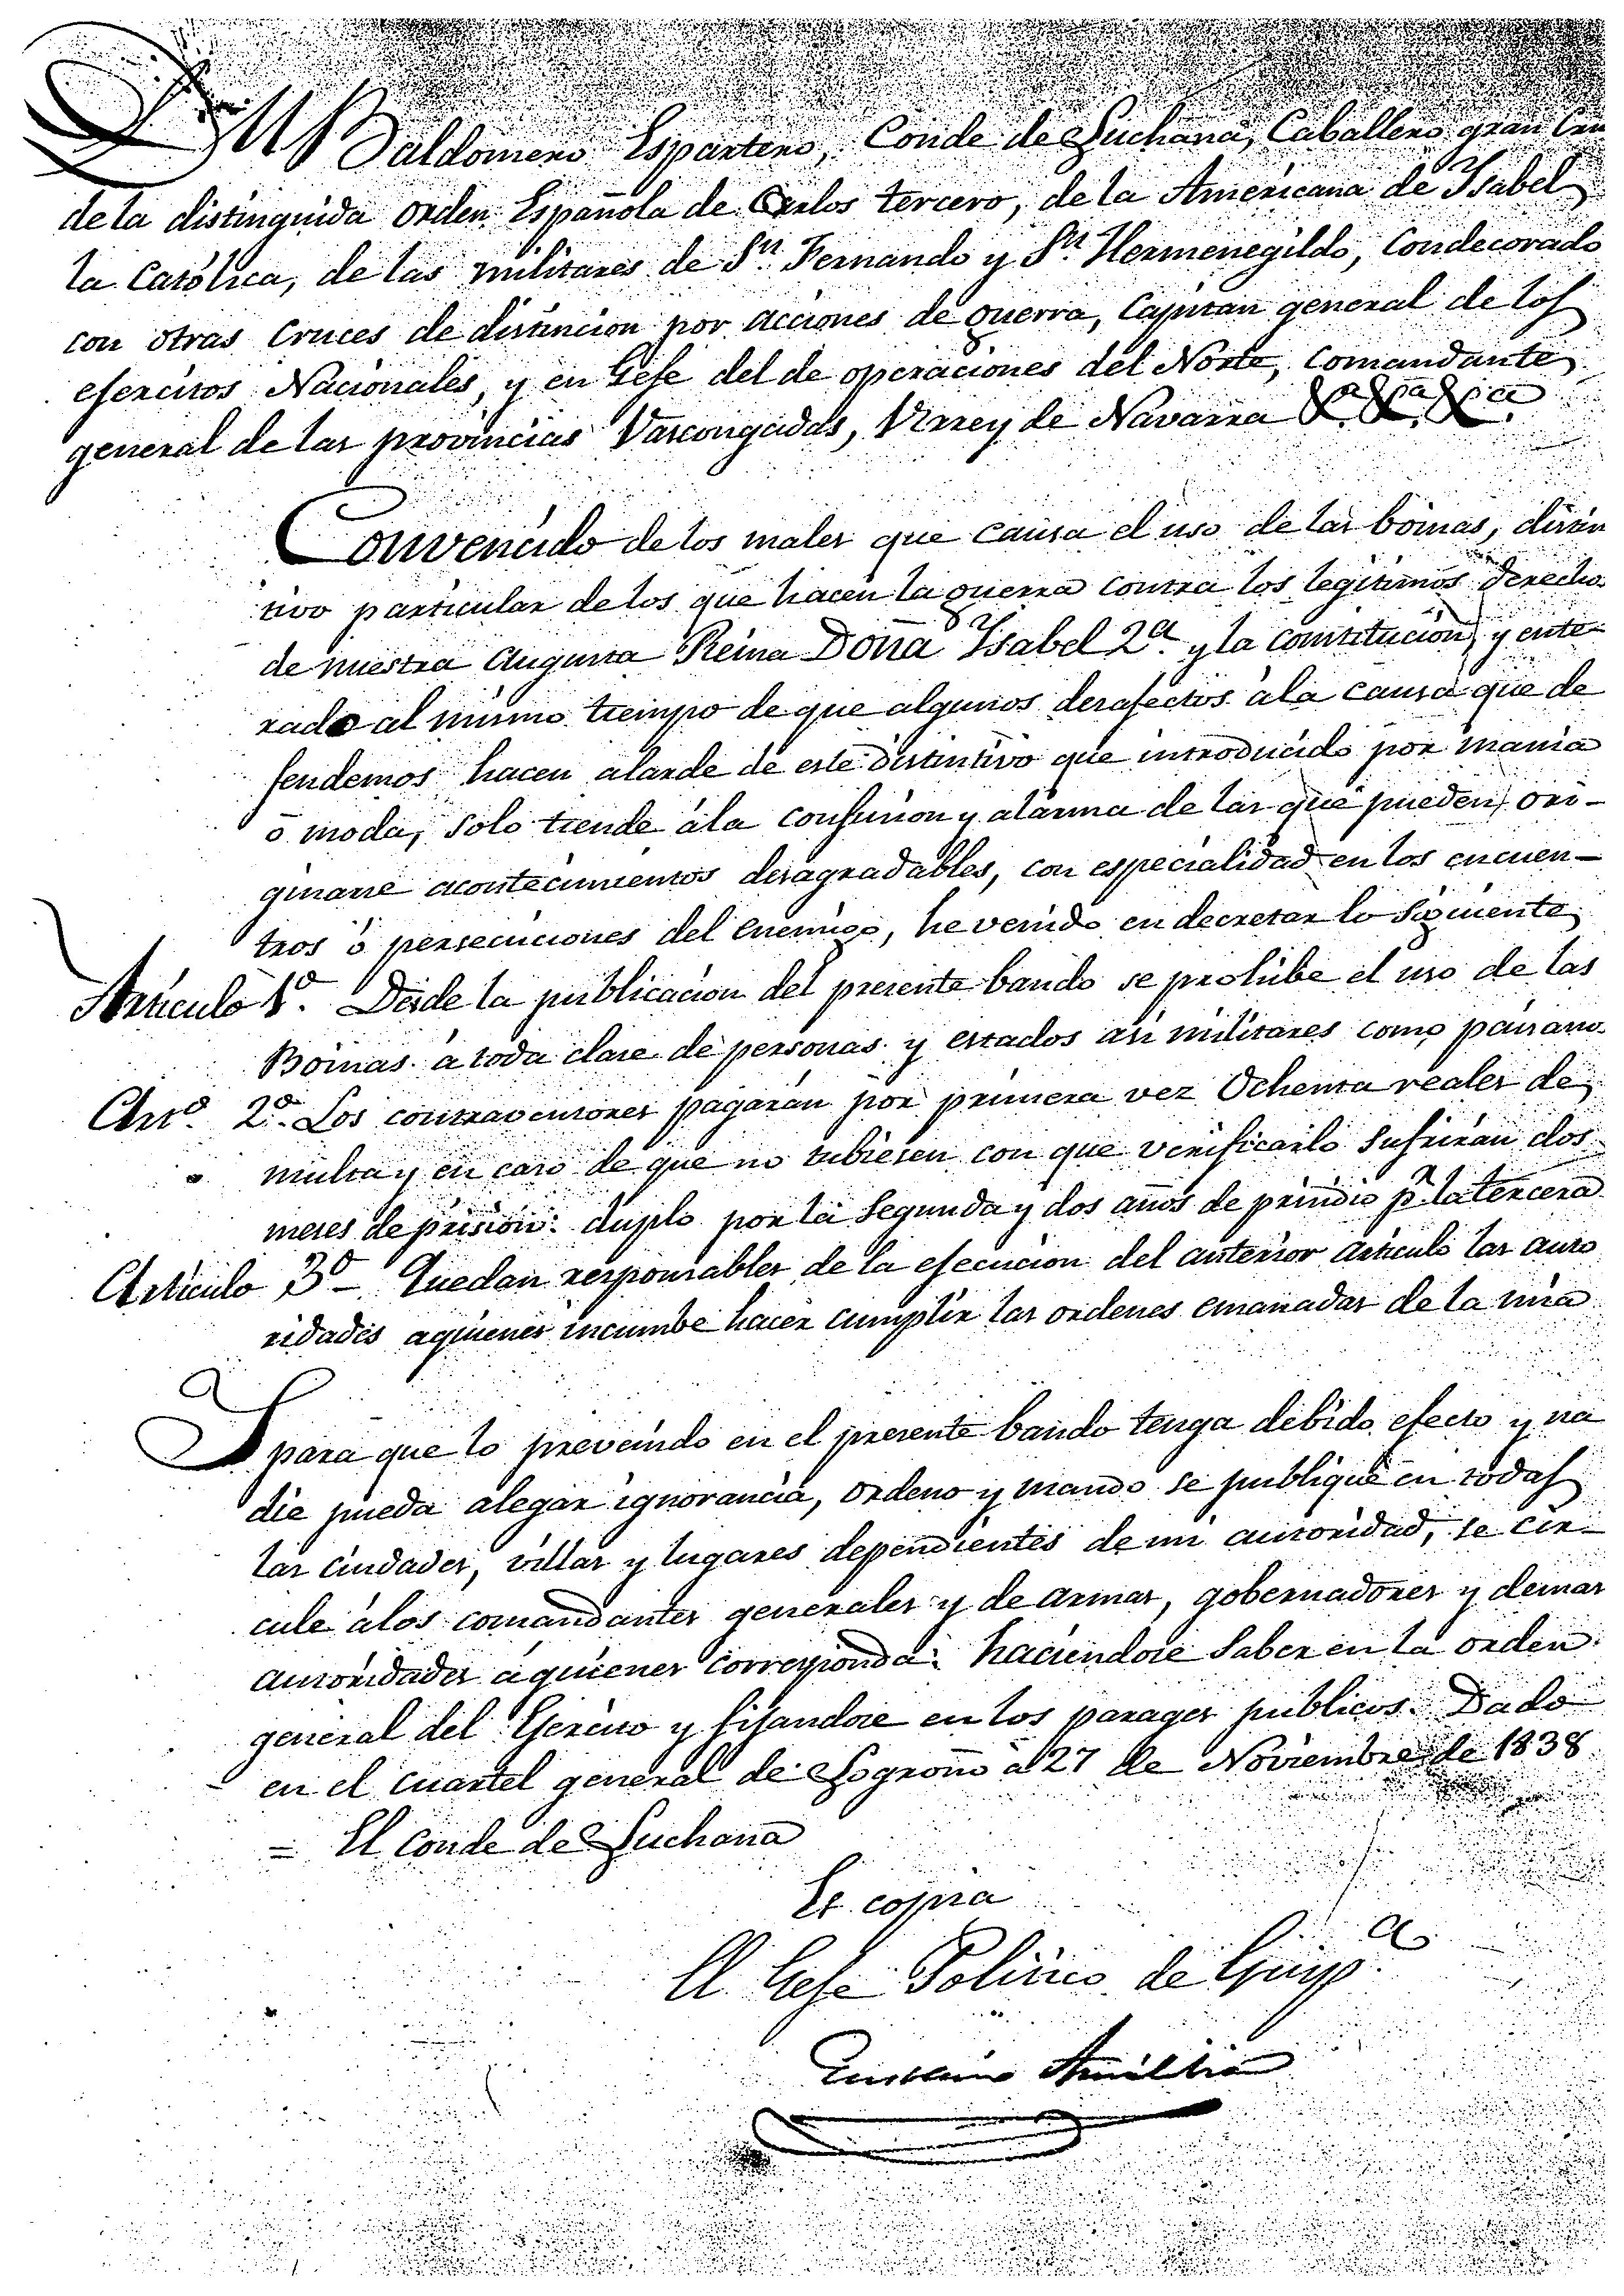 Dn Baldomero Espartero, Conde de Luchana, Caballero gran Cru
de la distinguida orden Española de Carlos tercero, de la Americana de Ysabel
la Católica, de las militares de Sn. Fernando y Sn. Hermenegildo, Condecorado
con otras Cruces de distincion por acciones de guerra, Capitan general de los
egercitos Nacionales, y en Gefe del de operaciones del Norte, Comandante
general de las provincias Vascongadas, Virrey de Navarra &a. &ca. &ca.
Convencido de los males que causa el uso de las boinas, distin
tivo particular de los que hacen la guerra contra los legitimos derechos
de nuestra Augusta Reina Doña Ysabel 2a. y la constitucion, y ente-
rado al mismo tiempo de que algunos desafectos á la causa que de
fendemos hacen alarde de este distintivo que introducido por mania
ó moda, solo tiende á la confusion y alarma de las que pueden ori-
ginarse acontecimientos desagradables, con especialidad en los encuen-
tros ó persecuciones del enemigo, he venido en decretar lo siguiente
Articulo 1o. Desde la publicacion del presente bando se prohibe el uso de las
Boinas á toda clase de personas y estados asi militares como paisanos
Arto. 2o. Los contraventores pagarán por primera vez Ochenta reales de
multa y en caso de que no tubiesen con que verificarlo sufriran dos
meses de prision: duplo por la segunda y dos años de presidio pr. la tercera
Articulo 3o- Quedan responsables de la egecucion del anterior articulo las auto
ridades aquienes incumbe hacer cumplir las ordenes emanadas de la mia
Y para que lo prevenido en el presente bando tenga debido efecto y na
die pueda alegar ignorancia, ordeno y mando se publique en todas
las ciudades, villas y lugares dependientes de mi autoridad, se cir-
cule á los comandantes generales y de armas, gobernadores y demas
autoridades á quienes corresponda: haciendose saber en la orden
general del Egercito y fijandose en los parages publicos. Dado
en el cuartel general de Logroño á 27 de Noviembre de 1838
= El Conde de Luchana
Es copia
El Gefe Politico de Guipa.
Eustasio Amilibia